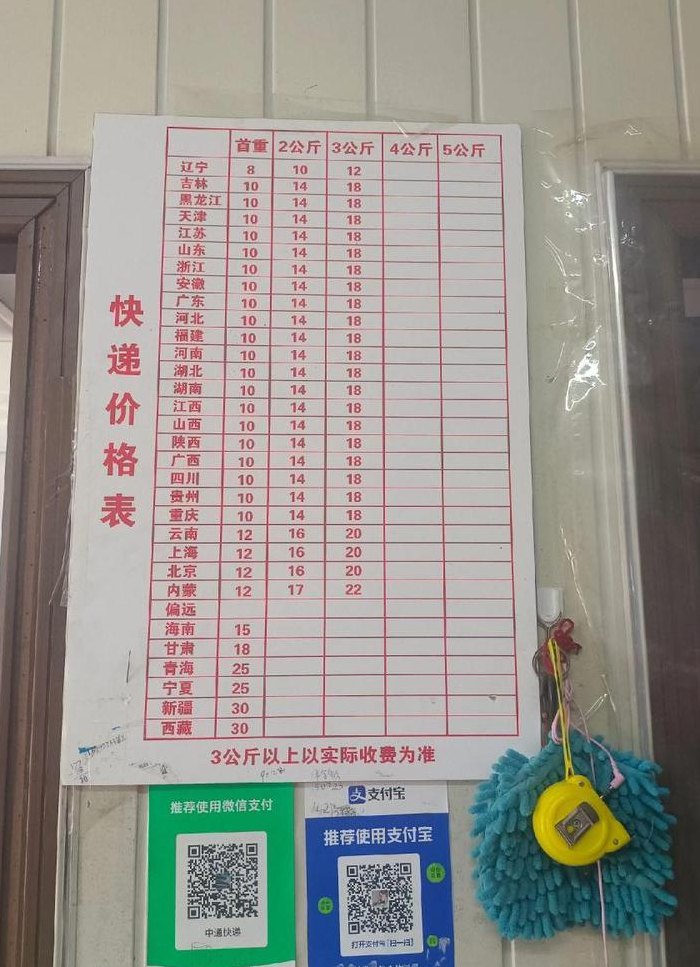 快递价格表
首重 2公斤 3公斤 4公斤 5公斤
辽宁 8 10 12
吉林 10 14 18
黑龙江 10 14 18
天津 10 14 18
江苏 10 14 18
山东 10 14 18
浙江 10 14 18
安徽 10 14 18
广东 10 14 18
河北 10 14 18
福建 10 14 18
河南 10 14 18
湖北 10 14 18
湖南 10 14 18
江西 10 14 18
山西 10 14 18
陕西 10 14 18
广西 10 14 18
四川 10 14 18
贵州 10 14 18
重庆 10 14 18
云南 12 16 20
上海 12 16 20
北京 12 16 20
内蒙 12 17 22
偏远
海南 15
甘肃 18
青海 25
宁夏 25
新疆 30
西藏 30
3公斤以上以实际收费为准
推荐使用微信支付
中通快递
支付宝
推荐使用支付宝
打开支付宝[扫一扫]